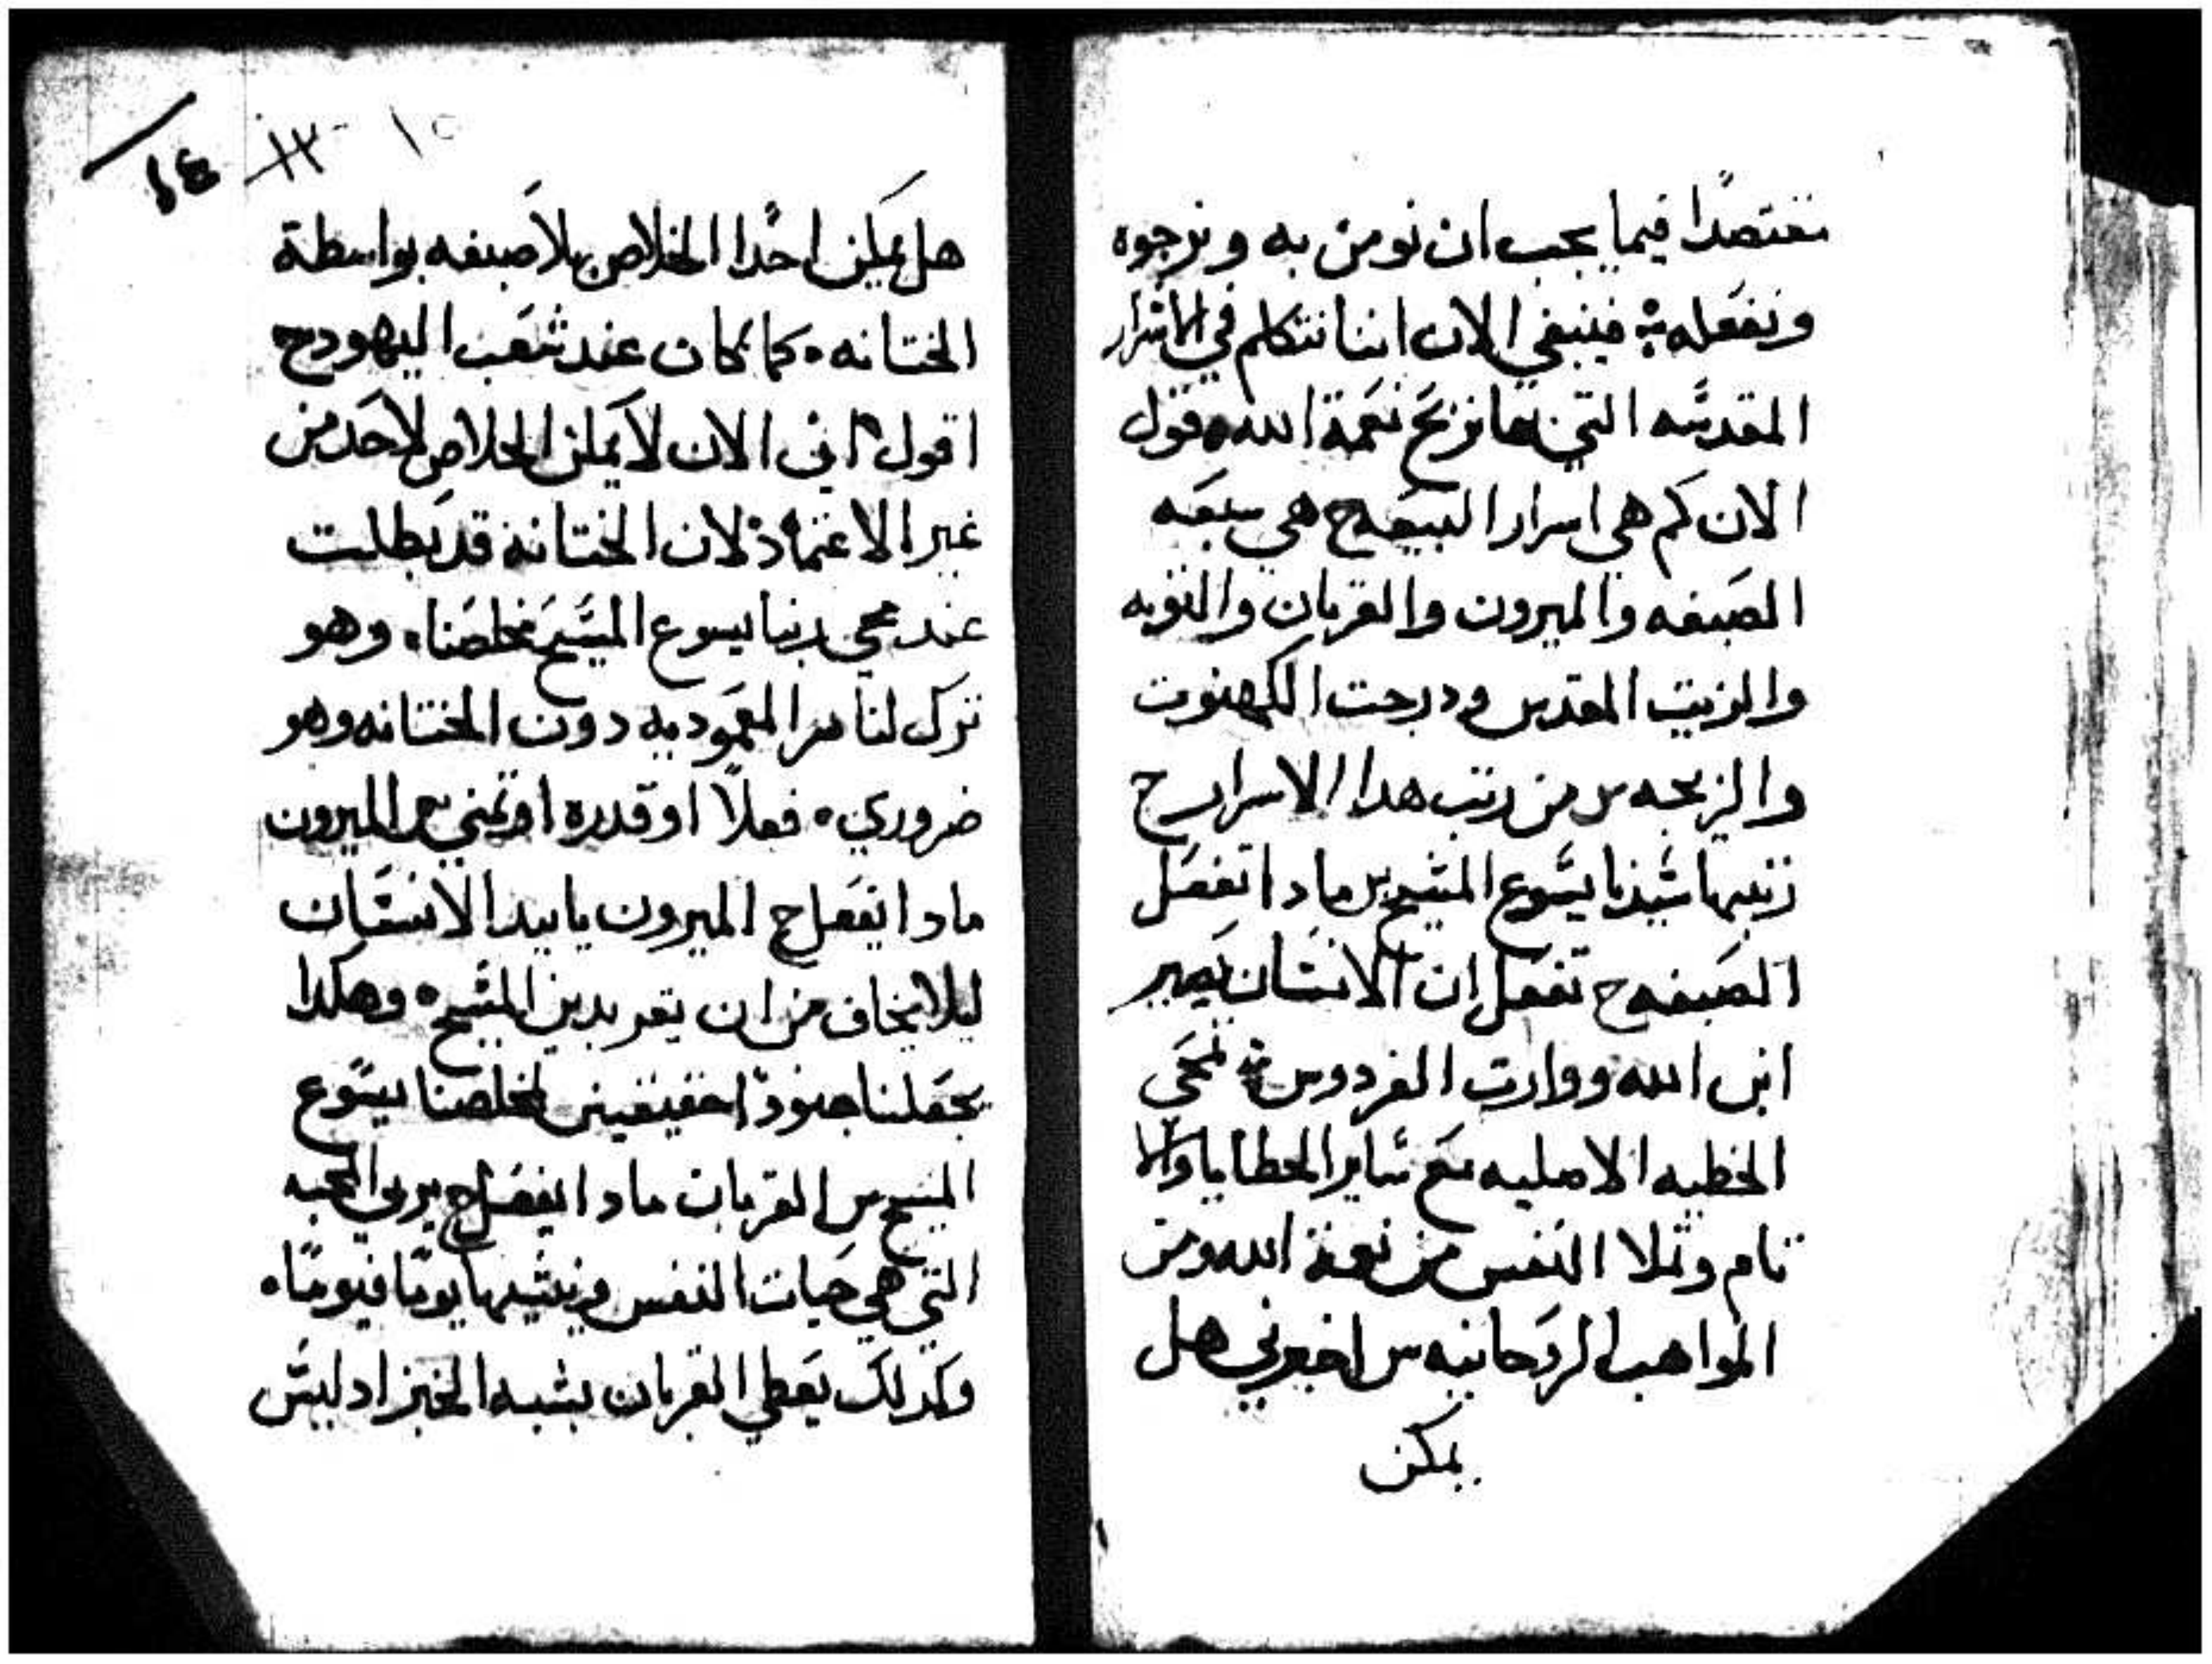 مختصدا فيما يجب ان نومن به ونرجوه
ونفعله فينبغي الان اننا نتكلم في الاسرار
المقدسه التي بها نربح نعمة الله وقول
الان كم هي اسرار البيعه ج هي سبعه
الصبغه والميرون والقربان والتوبه
والزيت المقدس ودرجت الكهنوت
والزيجه س من رتب هدا الاسرار ج
رتبها سيدنا يسوع المسيح س مادا تفعل
الصبغه ج تفعل ان الانسان يصير
ابن الله ووارت الفردوس تمحى
الخطيه الاصليه مع ساير الخطايا والا
تام وتملا النفس من نعمة الله ومن
المواهب الروحانيه س اخبرني هل
يمكن
١٤ ١٣ ١٥
هل يمكن احدا الخلاص بلا صبغه بواسطة
الختانه كما كان عند شعب اليهود ج
اقول انى الان لا يمكن الخلاص لاحد من
غير الاعتماد لان الختانه قد بطلت
عند مجي ربنا يسوع المسيح مخلصنا وهو
ترك لنا سر المعموديه دون الختانه وهو
ضروري فعلا او قدره او تمني س الميرون
مادا يفعل ج الميرون يايد الانسان
ليلا يخاف من ان يقر بدين المسيح وهكدا
يجعلنا جنودا حقيقيين لمخلصنا يسوع
المسيح س القربان مادا يفعل ج يربي المحبه
التي هي حيات النفس وينشيها يوما فيوما
وكدلك يعطي القربان بشبه الخبز اد ليس